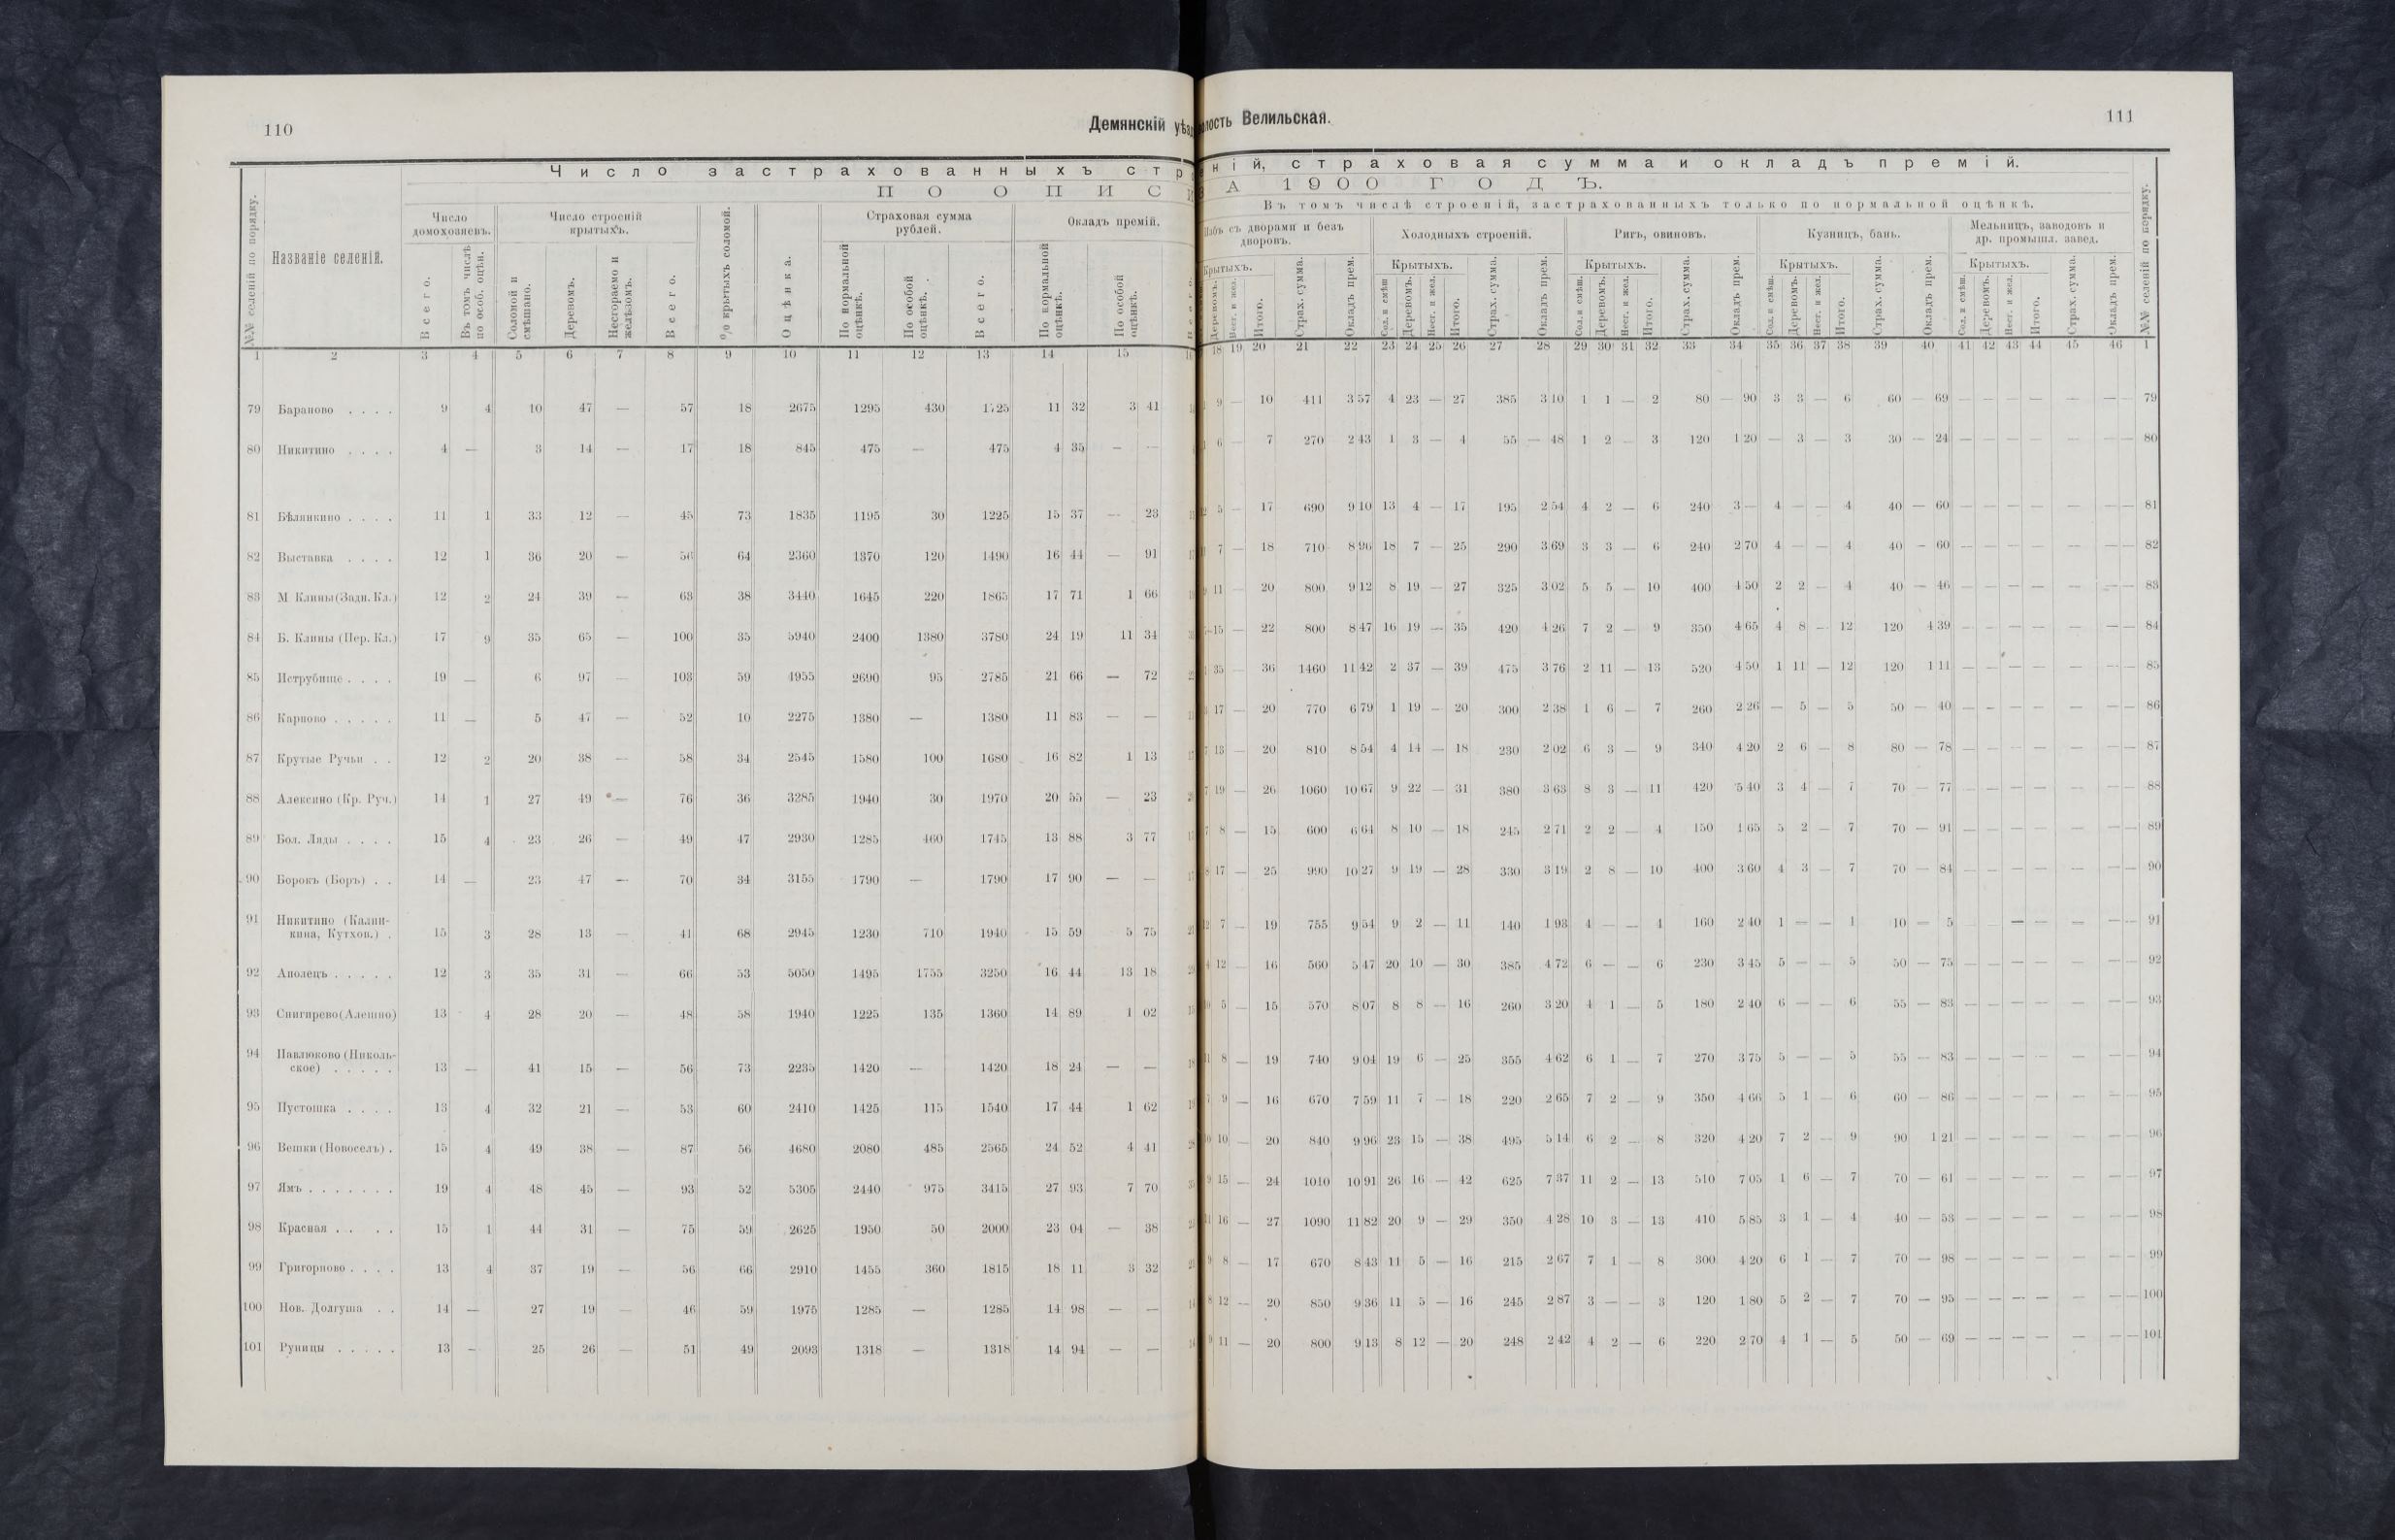 110
Демянскій уѣзд
Число застрахованныхъ стр
ПО ОПИС
№№ селеній по порядку.
Названіе селеній.
Число домохозяевъ.
Всего.
Въ томъ числѣ по особ. оцѣн.
Число строеній крытыхъ.
Соломой и смѣшано.
Деревомъ.
Несгораемо и желѣзомъ.
Всего.
% крытыхъ соломой.
Оцѣнка.
Страховая сумма рублей.
По нормальной оцѣнкѣ.
По особой оцѣнкѣ.
Всего.
Окладъ премій.
По нормальной оцѣнкѣ.
По особой оцѣнкѣ.
1 2 3 4 5 6 7 8 9 10 11 12 13 14 15
79 Бараново . . . . 9 4 10 47 — 57 18 2675 1295 430 1725 11 32 3 41
80 Никитино . . . . 4 — 3 14 — 17 18 845 475 — 475 4 35 — —
81 Бѣлянкино . . . . 11 1 33 12 — 45 73 1835 1195 30 1225 15 37 — 23
82 Выставка . . . . 12 1 36 20 — 56 64 2360 1370 120 1490 16 44 — 91
83 М. Клины (Задн. Кл.) 12 2 24 39 — 63 38 3440 1645 220 1865 17 71 1 66
84 Б. Клины (Пер. Кл.) 17 9 35 65 — 100 35 5940 2400 1380 3780 24 19 11 34
85 Иструбище . . . . 19 — 6 97 — 103 59 4955 2690 95 2785 21 66 — 72
86 Карпово . . . . . 11 — 5 47 — 52 10 2275 1380 — 1380 11 83 — —
87 Крутые Ручьи . . 12 2 20 38 — 58 34 2545 1580 100 1680 16 82 1 13
88 Алексино (Кр. Руч.) 14 1 27 49 — 76 36 3285 1940 30 1970 20 55 — 23
89 Бол. Ляды . . . . 15 4 23 26 — 49 47 2930 1285 460 1745 13 88 3 77
90 Борокъ (Боръ) . . 14 — 23 47 — 70 34 3155 1790 — 1790 17 90 — —
91 Никитино (Калин-
кина, Кутхов.) . 15 3 28 13 — 41 68 2945 1230 710 1940 15 59 5 75
92 Аполецъ . . . . . 12 3 35 31 — 66 53 5050 1495 1755 3250 16 44 13 18
93 Снигирево (Алешно) 13 4 28 20 — 48 58 1940 1225 135 1360 14 89 1 02
94 Павлюково (Николь-
ское) . . . . . 13 — 41 15 — 56 73 2235 1420 — 1420 18 24 — —
95 Пустошка . . . . 13 4 32 21 — 53 60 2410 1425 115 1540 17 44 1 62
96 Вешки (Новосель) . 15 4 49 38 — 87 56 4680 2080 485 2565 24 52 4 41
97 Ямъ . . . . . . . 19 4 48 45 — 93 52 5305 2440 975 3415 27 93 7 70
98 Красная . . . . 15 1 44 31 — 75 59 2625 1950 50 2000 23 04 — 38
99 Григорново . . . . 13 4 37 19 — 56 66 2910 1455 360 1815 18 11 3 32
100 Нов. Долгуша . . 14 — 27 19 — 46 59 1975 1285 — 1285 14 98 — —
101 Руницы . . . . . 13 — 25 26 — 51 49 2093 1318 — 1318 14 94 — —
олость Велильская.
111
ній, страховая сумма и окладъ премій.
ЗА 1900 ГОДЪ.
Въ томъ числѣ строеній, застрахованныхъ только по нормальной оцѣнкѣ.
Избъ съ дворами и безъ дворовъ.
Крытыхъ.
Деревомъ.
Нест. и жел.
Итого.
Страх. сумма.
Окладъ прем.
Холодныхъ строеній.
Крытыхъ.
Сол. и смѣш
Деревомъ.
Несг. и жел.
Итого.
Страх. сумма.
Окладъ прем.
Ригъ, овиновъ.
Крытыхъ.
Сол. и смѣш.
Деревомъ.
Несг. и жел.
Итого.
Страх. сумма.
Окладъ прем.
Кузницъ, бань.
Крытыхъ.
Сол. и смѣш.
Деревомъ.
Несг. и жел.
Итого.
Страх. сумма.
Окладъ прем.
Мельницъ, заводовъ и др. промышл. завед.
Крытыхъ.
Сол. и смѣш.
Деревомъ.
Несг. и жел.
Итого.
Страх. сумма.
Окладъ прем.
№№ селеній по порядку.
18 19 20 21 22 23 24 25 26 27 28 29 30 31 32 33 34 35 36 37 38 39 40 41 42 43 44 45 46 1
9 — 10 411 3 57 4 23 — 27 385 3 10 1 1 — 2 80 — 90 3 3 — 6 60 — 69 — — — — — — — 79
6 — 7 270 2 43 1 3 — 4 55 — 48 1 2 — 3 120 1 20 — 3 — 3 30 — 24 — — — — — — — 80
5 — 17 690 9 10 13 4 — 17 195 2 54 4 2 — 6 240 3 — 4 — — 4 40 — 60 — — — — — — — 81
7 — 18 710 8 96 18 7 — 25 290 3 69 3 3 — 6 240 2 70 4 — — 4 40 — 60 — — — — — — — 82
11 — 20 800 9 12 8 19 — 27 325 3 02 5 5 — 10 400 4 50 2 2 — 4 40 — 46 — — — — — — — 83
15 — 22 800 8 47 16 19 — 35 420 4 26 7 2 — 9 350 4 65 4 8 — 12 120 4 39 — — — — — — — 84
35 — 36 1460 11 42 2 37 — 39 475 3 76 2 11 — 13 520 4 50 1 11 — 12 120 1 11 — — — — — — — 85
17 — 20 770 6 79 1 19 — 20 300 2 38 1 6 — 7 260 2 26 — 5 — 5 50 — 40 — — — — — — — 86
13 — 20 810 8 54 4 14 — 18 230 2 02 6 3 — 9 340 4 20 2 6 — 8 80 — 78 — — — — — — — 87
19 — 26 1060 10 67 9 22 — 31 380 3 63 8 3 — 11 420 5 40 3 4 — 7 70 — 77 — — — — — — — 88
8 — 15 600 6 61 8 10 — 18 245 2 71 2 2 — 4 150 1 65 5 2 — 7 70 — 91 — — — — — — — 89
17 — 25 990 10 27 9 19 — 28 330 3 19 2 8 — 10 400 3 60 4 3 — 7 70 — 84 — — — — — — — 90
7 — 19 755 9 54 9 2 — 11 140 1 93 4 — — 4 160 2 40 1 — — 1 10 — 5 — — — — — 91
12 — 16 560 5 47 20 10 — 30 385 4 72 6 — — 6 230 3 45 5 — — 5 50 — 75 — — — — — — — 92
5 — 15 570 8 07 8 8 — 16 260 3 20 4 1 — 5 180 2 40 6 — — 6 55 — 83 — — — — — — — 93
8 — 19 740 9 04 19 6 — 25 355 4 62 6 1 — 7 270 3 75 5 — — 5 55 — 83 — — — — — — — 94
9 — 16 670 7 59 11 7 — 18 220 2 65 7 2 — 9 350 4 66 5 1 — 6 60 — 86 — — — — — — — 95
10 — 20 840 9 96 23 15 — 38 495 5 14 6 2 — 8 320 4 20 7 2 — 9 90 1 21 — — — — — — — 96
15 — 24 1010 10 91 26 16 — 42 625 7 37 11 2 — 13 510 7 05 1 6 — 7 70 — 61 — — — — — — — 97
16 — 27 1090 11 82 20 9 — 29 350 4 28 10 3 — 13 410 5 85 3 1 — 4 40 — 53 — — — — — — — 98
8 — 17 670 8 43 11 5 — 16 215 2 67 7 1 — 8 300 4 20 6 1 — 7 70 — 98 — — — — — — — 99
12 — 20 850 9 36 11 5 — 16 245 2 87 3 — — 3 120 1 80 5 2 — 7 70 — 95 — — — — — — — 100
11 — 20 800 9 13 8 12 — 20 248 2 42 4 2 — 6 220 2 70 4 1 — 5 50 — 69 — — — — — — — 101